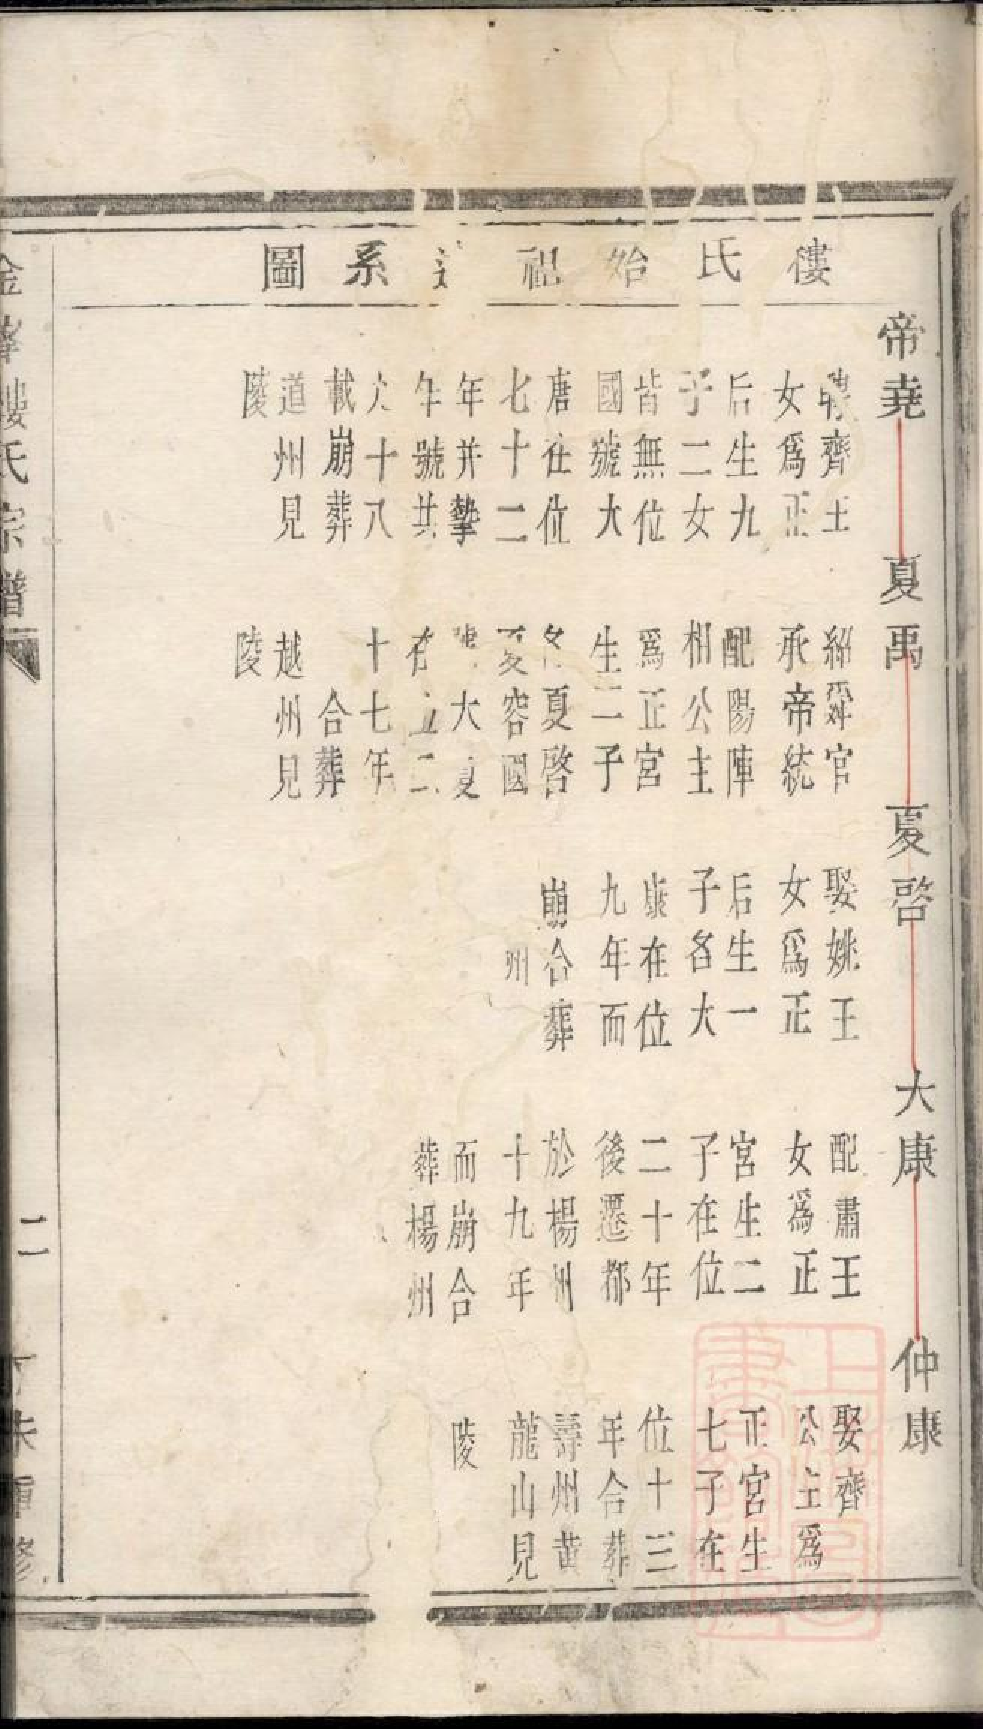 樓氏始祖系圖
帝堯
齊王
女為正
后生九
子二女
皆無位
國號大
唐在位
七十二
年并摯
年號共
六十八
載崩葬
道州見
陵
夏禹
紹舜官
承帝統
配陽陣
相公主
為正宮
生二子
名夏啓
夏容國
大夏
在位二
十七年
合葬
越州見
陵
夏啓
娶姚王
女為正
后生一
子名大
康在位
九年而
崩合葬
州
大康
配肅王
女為正
宮生二
子在位
二十年
後遷都
於楊州
十九年
而崩合
葬楊州
仲康
娶齊
公主為
正宮生
七子在
位十三
年合葬
壽州黄
龍山見
陵
金華樓氏宗譜
二
丁未重修